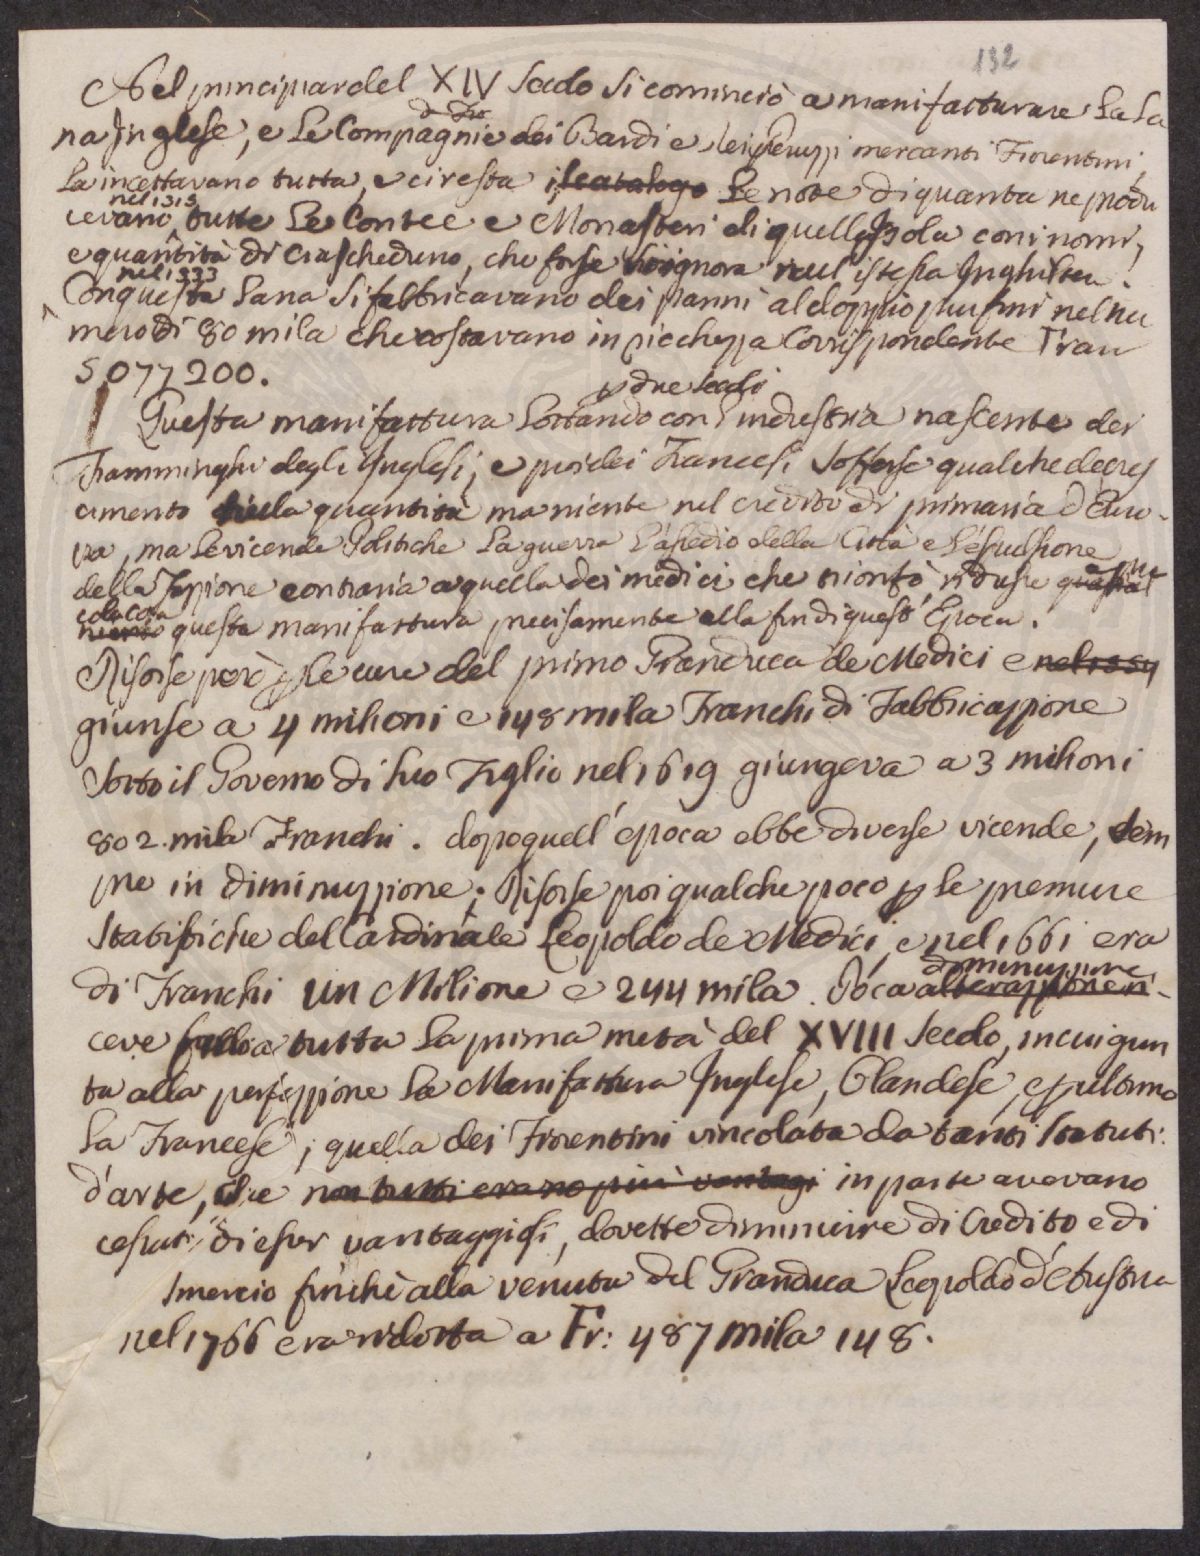 132
Nel principiar del XIV Secolo si cominciò a manifatturare La La
na Inglese, e Le Compagnie dei Bardi e dei Peruzzi mercanti Fiorentini,
La incettavano tutta, e ci resta il catalogo Le note di quanta ne produ
nel 1315
cevano, tutte Le Contee e Monasteri di quell'Isola coni nomi,
e quantità di ciascheduno, che forse s'ignora nell'istessa Inghilterra.
nel 1333
Con questa Lana si fabbricavano dei panni al doppio piu fini nel nu
mero di 80 mila che costavano in ricchezza Corrispondente Fran
5,077200.
p due secoli
Questa manifattura Lottando con l'industria nascente dei
Fiamminghi degl'Inglesi, e poi dei Francesi Sofferse qualche decres
cimento nella quantità ma niente nel credito di primaria d'Euro-
pa, ma Le vicende Politiche La guerra L'assedio della Città e L'espulsione
della Fazione contraria a quella dei medici che trionfò ridusse quasi al
piccola cosa
niente questa manifattura precisamente alla fin di quest'Epoca.
Risorse però p le cure del primo Granduca de Medici e nel 1554
giunse a 4 milioni e 148 mila Franchi di Fabbricazzione
Sotto il Governo di suo Figlio nel 1619 giungeva a 3 milioni
802. mila Franchi. dopo quell'epoca ebbe diverse vicende, sem
pre in diminuzzione; Risorse poi qualche poco p Le premure
Statistiche del Cardinale Leopoldo de Medici, e nel 1661 era
di Franchi un Milione e 244 mila. Poca alterazzione ri-
diminuzzione
ceve tutta La prima metà del XVIII Secolo, in cui giun
ta alla perfezzione La Manifattura Inglese, Olandese, e p ultimo
La Francese, quella dei Fiorentini vincolata da tanti Statuti
d'arte, che non tutti erano più vantagi in parte avevano
cessato di esser vantaggiosi, dovette diminuire di Credito e di
smercio finchè alla venuta del Granduca Leopoldo d'Austria
nel 1766 era ridotta a Fr: 487 mila 148.